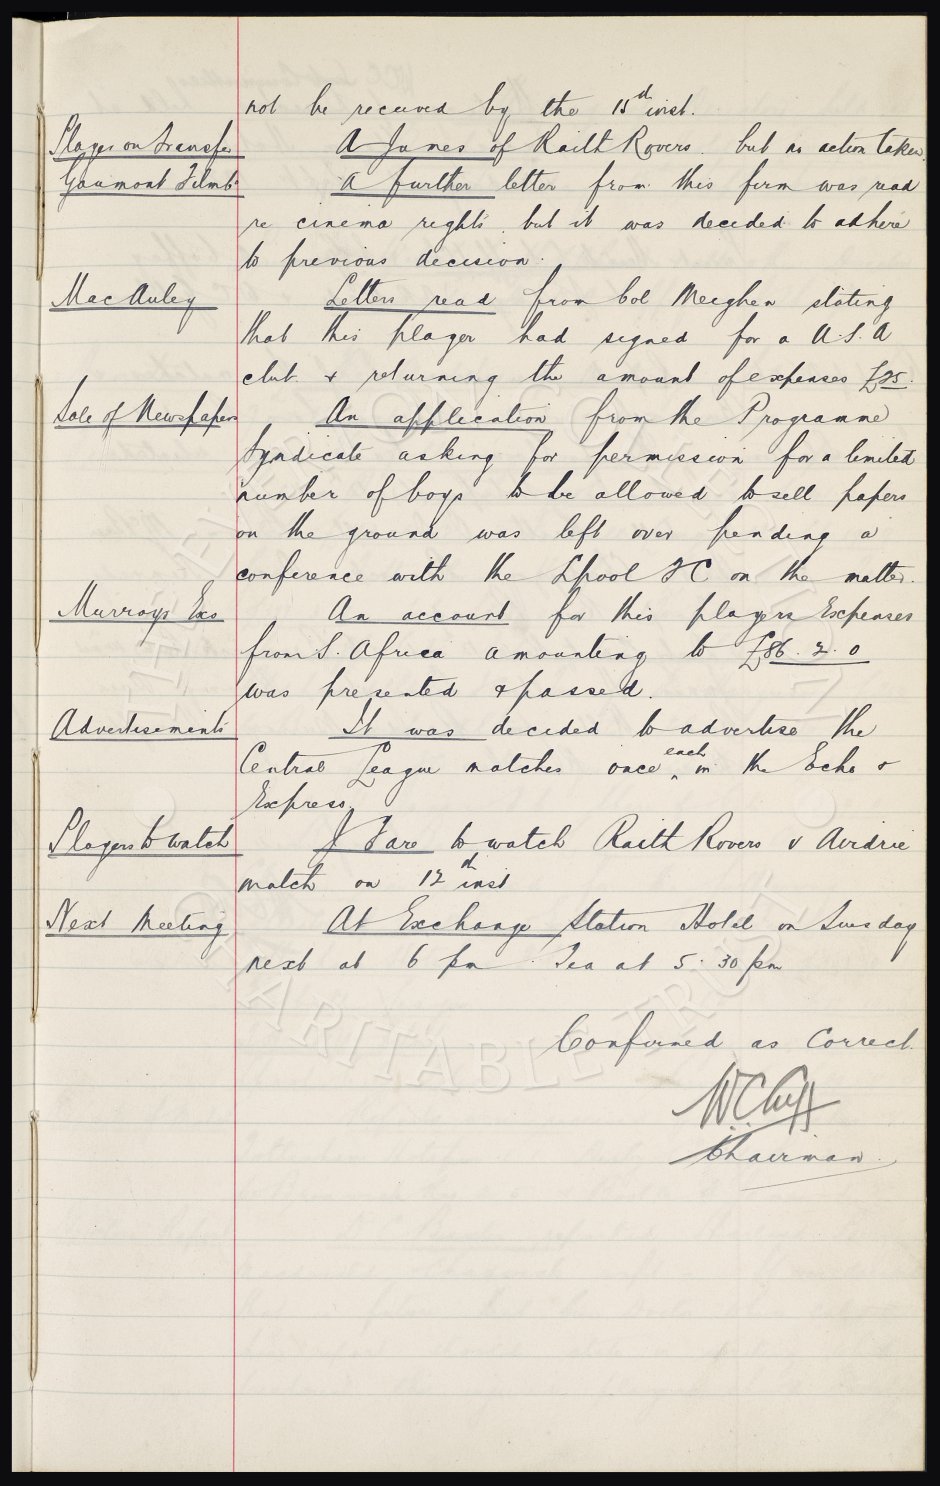 not be received by the 15th inst.
Player on Transfer A James of Raith Rovers. but no action taken.
Gaumont Films A further letter from this firm was read
re cinema rights, but it was decided to adhere
to previous decision.
MacAuley Letters read from Col Meighen stating
that this player had signed for a U.S.A
club & returning the amount of expenses £25.
Sale of Newspapers An application from the Programme
Syndicate asking for permission for a limited
number of boys to be allowed to sell papers
on the ground was left over pending a
conference with the Lpool FC on the matter.
Murrays Exs An account for this players Expenses
from S. Africa amounting to £86. 2. 0
was presented & passed.
Advertisements It was decided to advertise the
Central League matches once each in the Echo &
Express.
Players to watch J Fare to watch Raith Rovers v Airdrie
match on 12th inst
Next Meeting At Exchange Station Hotel on Tuesday
next at 6 pm. Tea at 5.30 pm
Confirmed as Correct.
W.C. Cuff
Chairman.
CHARITABLE TRUST